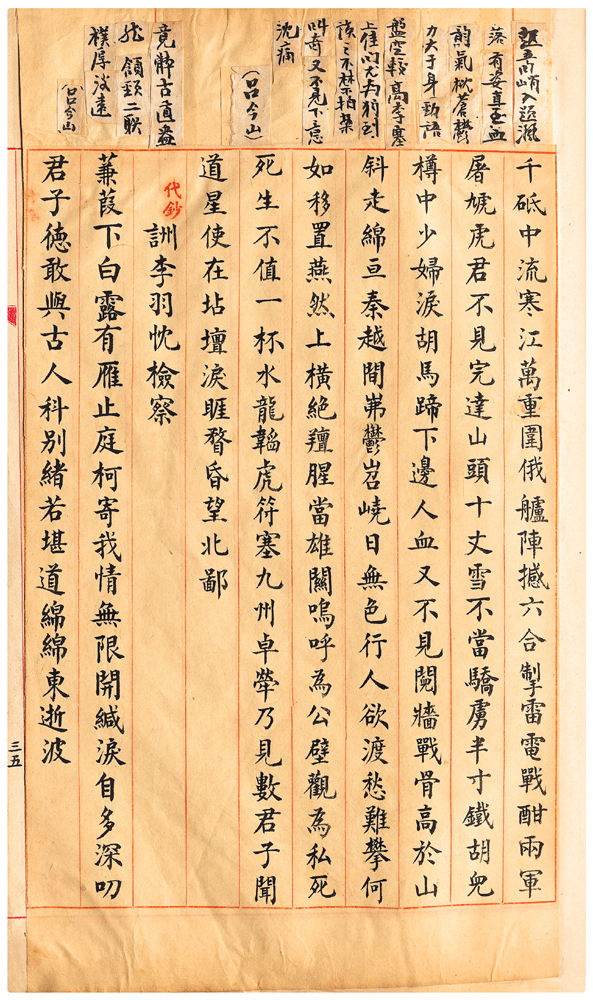 挺立奇峭入題沉
落有姿直至血
韻氣蒼鬱
力大于身勁語
盤空較高季塞
上佳
讀之不禁拍案
叫奇又不免下意
沈痛
(呂今山)
竟體古直蒼
頷頸二聯
樸厚淡遠
(呂今山)
千砥中流寒江萬重圍俄艫陣撼六合掣雷電戰酣兩軍
屠虓虎君不見完達山頭十丈雪不當驕虜半寸鐵胡兒
樽中少婦淚胡馬蹄下邊人血又不見鬩牆戰骨高於山
斜走綿亘秦越間岪鬱岧嶢日無色行人欲渡愁難攀何
如移置燕然上橫絕羶腥當雄關嗚呼為公壁觀為私死
死生不值一杯水龍韜虎符塞九州卓犖乃見數君子聞
道星使在坫壇淚睚瞀昏望北鄙
代鈔
詶李羽忱檢察
蒹葭下白露有雁止庭柯寄我情無限開緘淚自多深叨
君子德敢與古人科別緒若堪道綿綿東逝波
三五